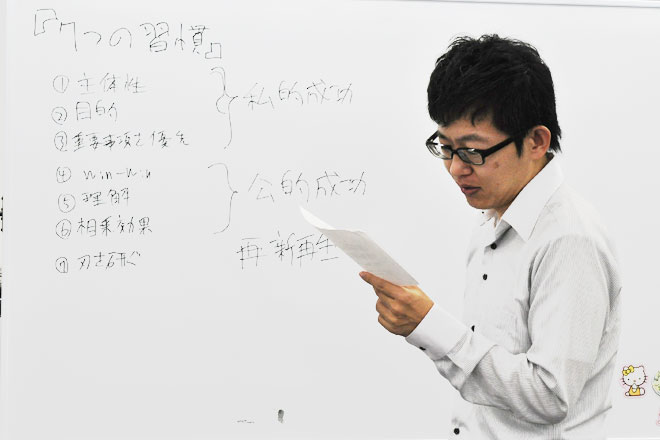 『7つの習慣』
① 主体性
② 目的
③ 重要事項を優先
私的成功
④ win-win
⑤ 理解
⑥ 相乗効果
公的成功
⑦ 刃を研ぐ
再新再生